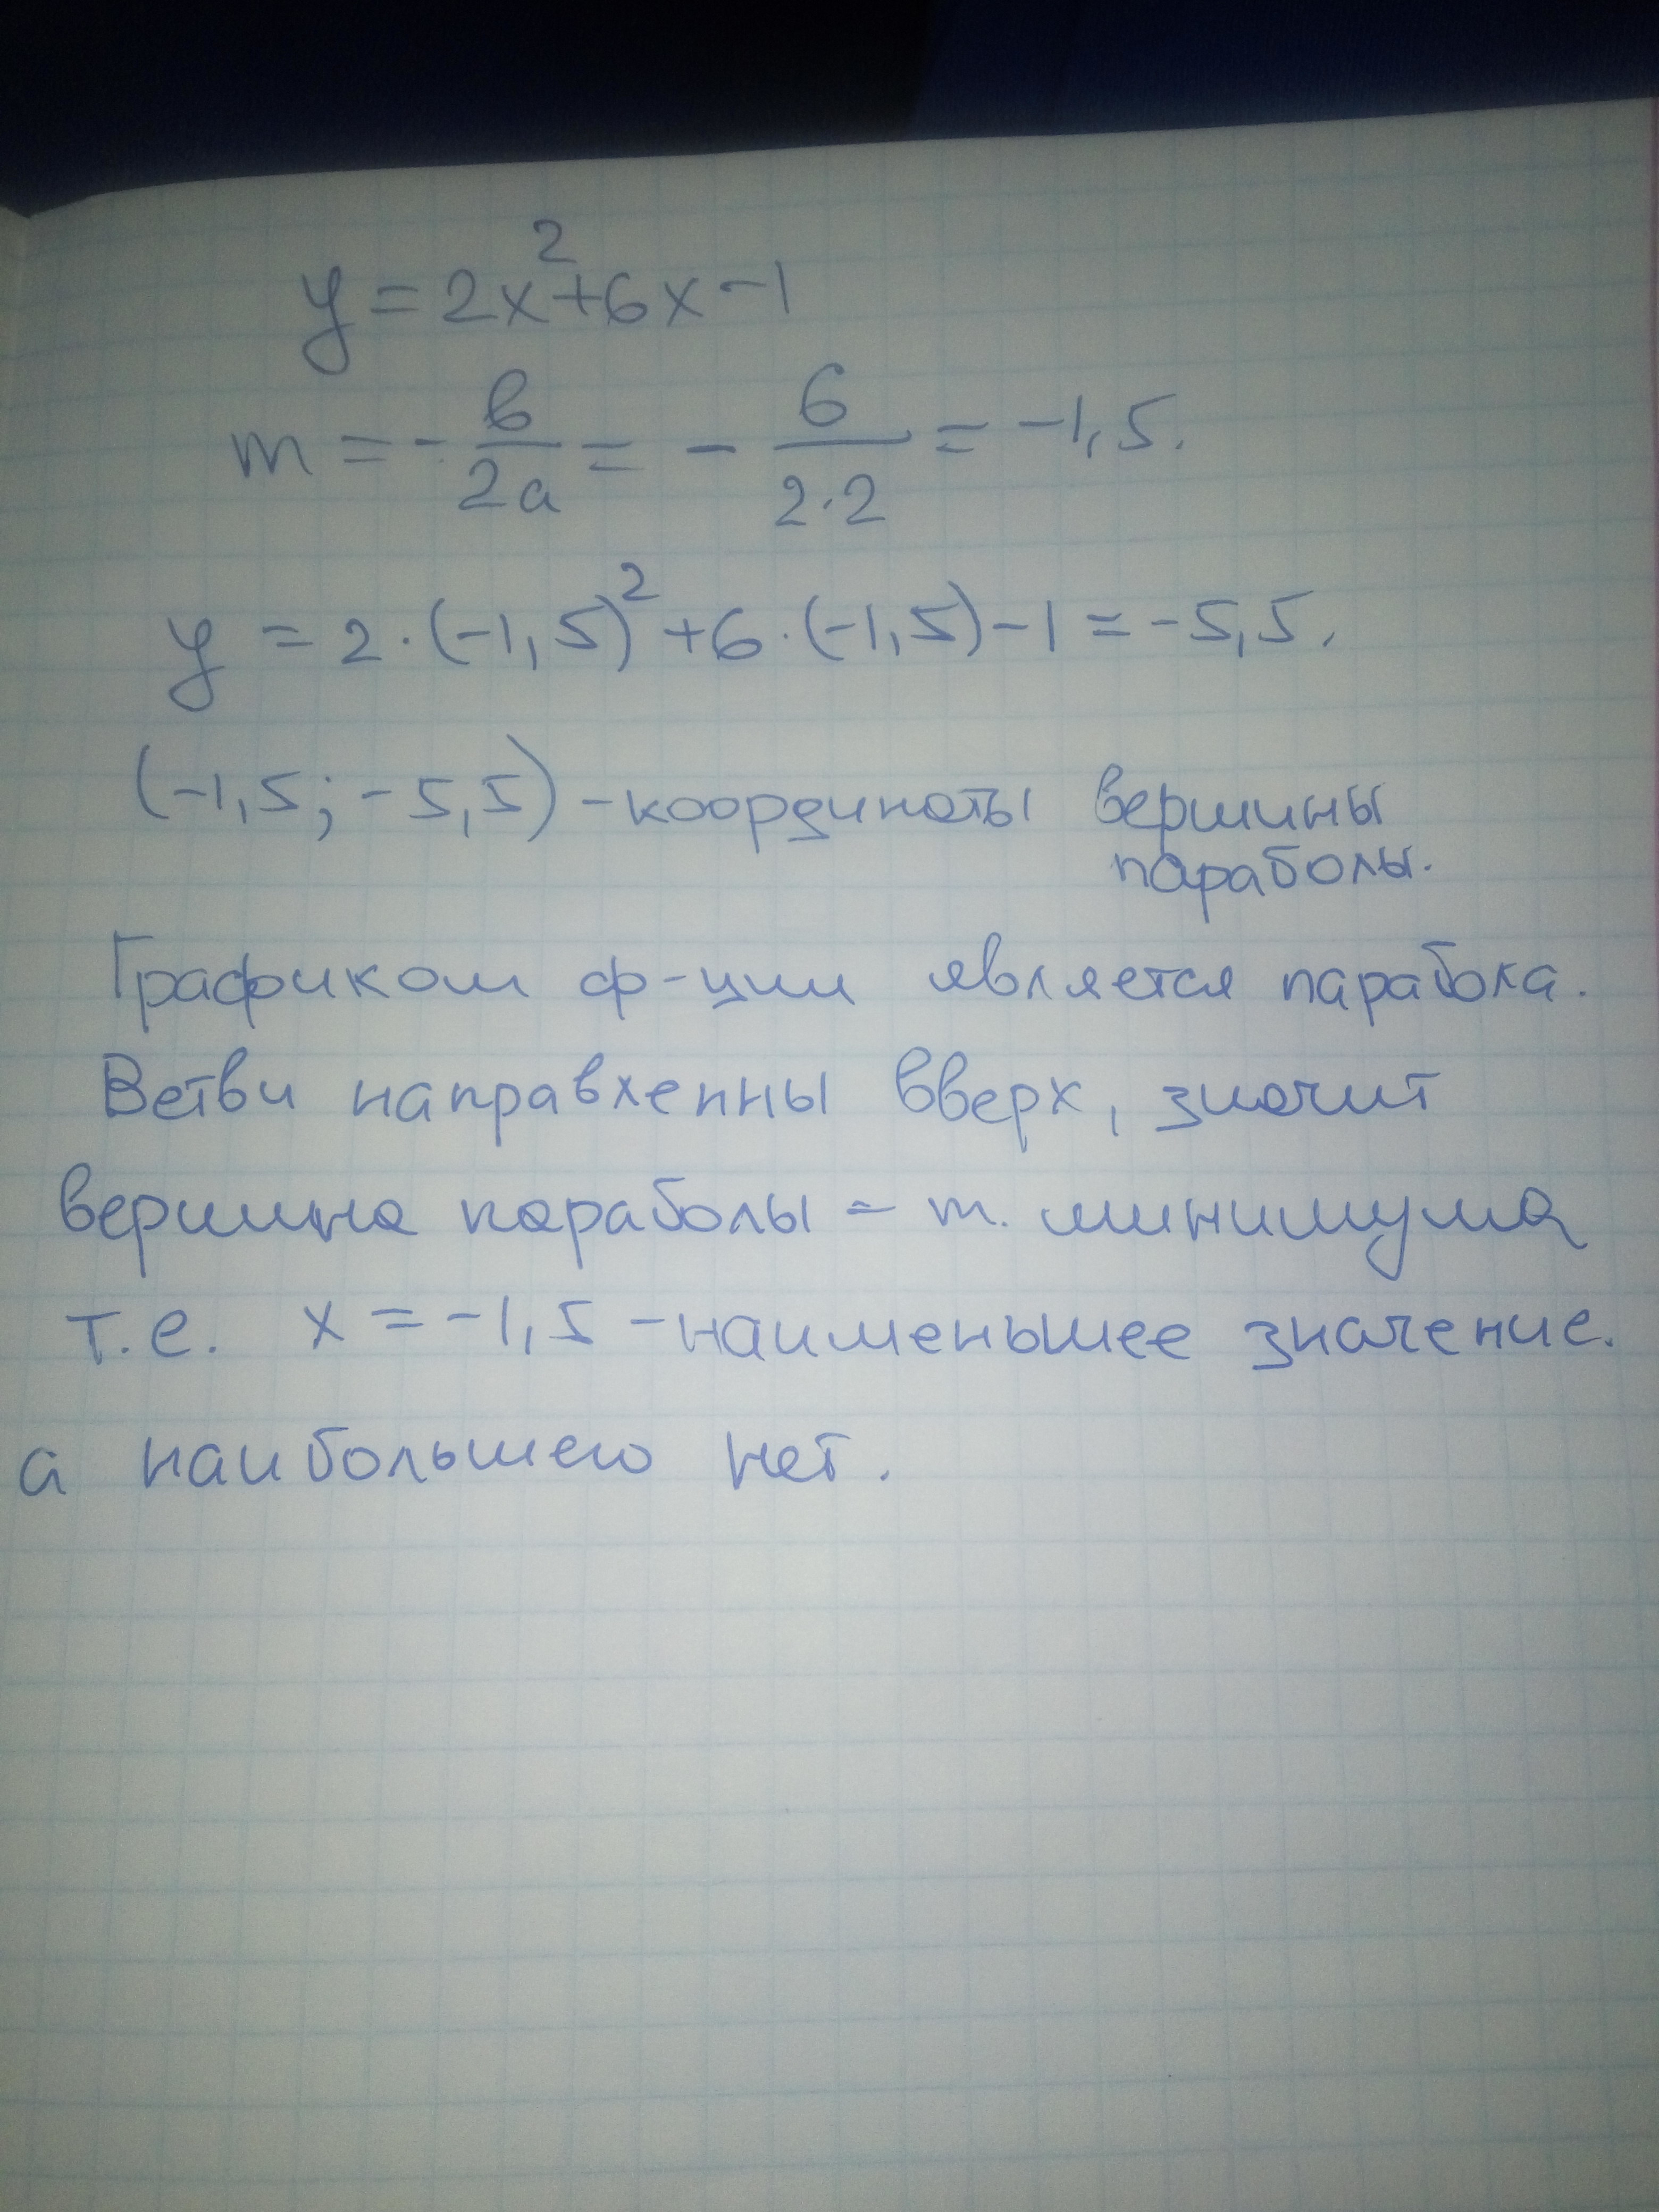 y = 2x² + 6x - 1
m = - в/2a = - 6/2·2 = -1,5.
y = 2·(-1,5)² + 6·(-1,5) - 1 = -5,5.
(-1,5; -5,5) - координаты вершины
параболы.
Графиком ф-ции является парабола.
Ветви направленны вверх, значит
вершина параболы - т. минимума
т.е. x = -1,5 - наименьшее значение.
а наибольшего нет.